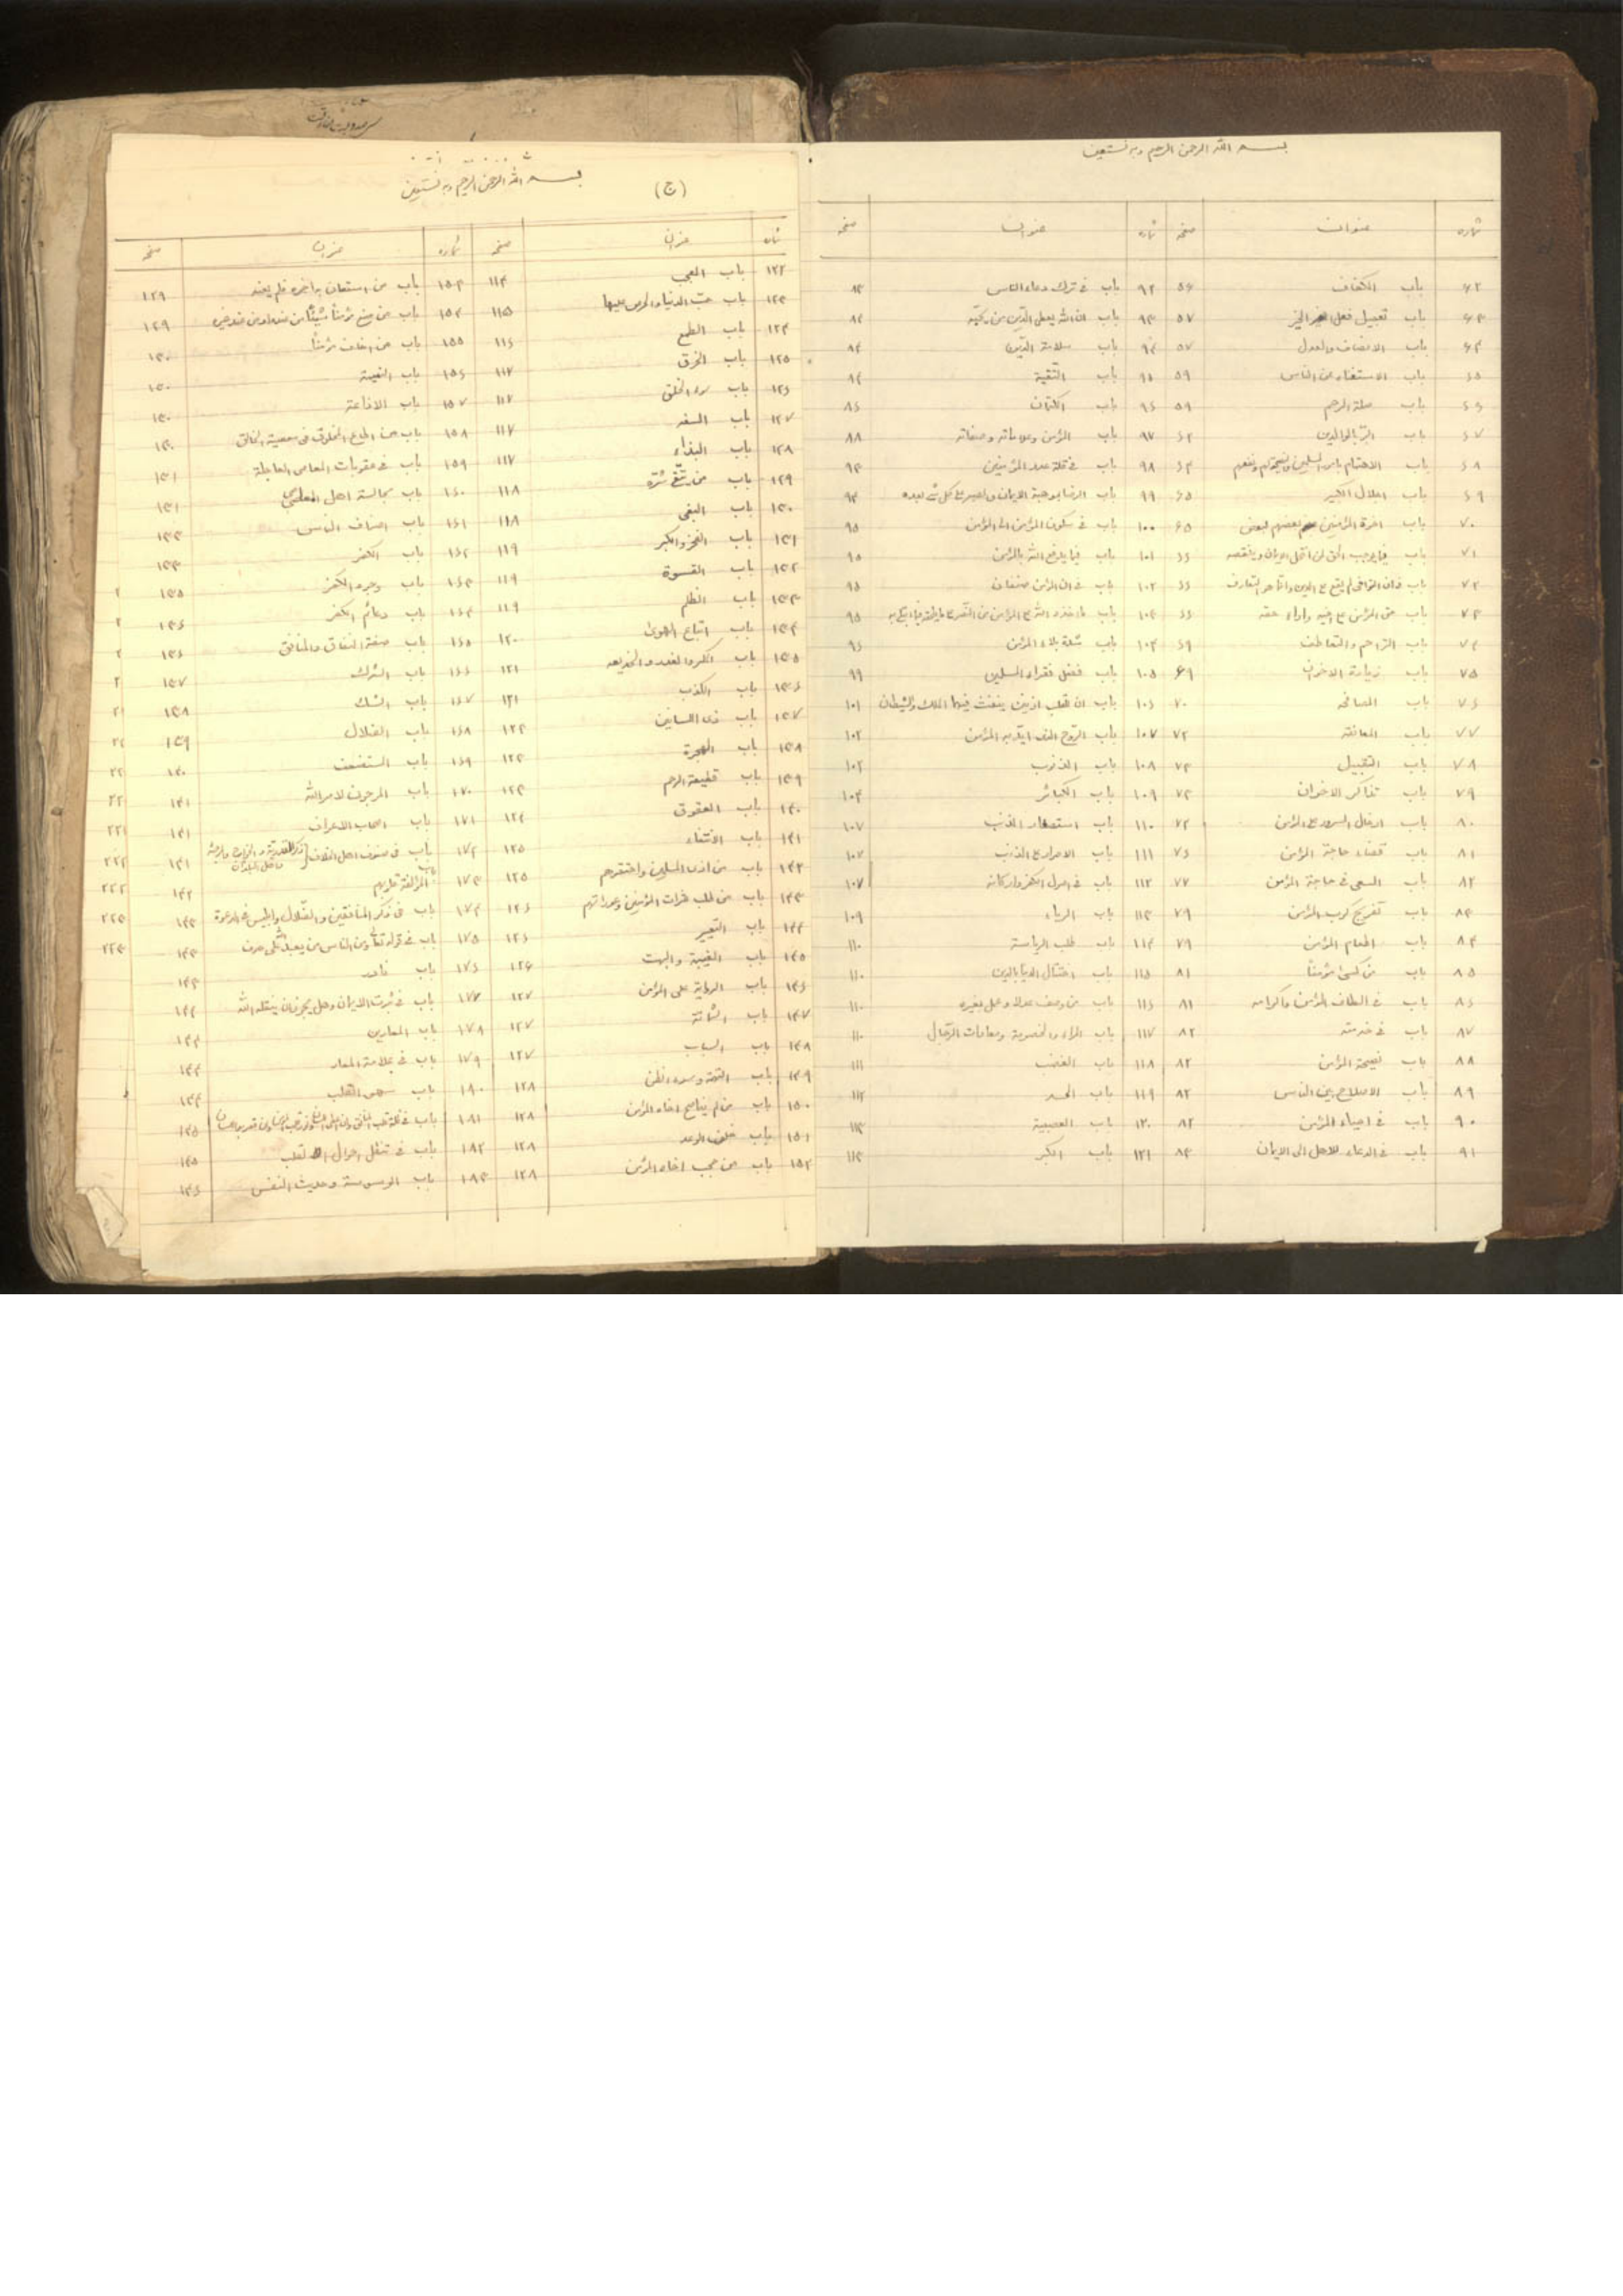 بسم الله الرحمن الرحیم و به نستعین
شماره عنوان صفحه شماره عنوان صفحه
۶۲ باب الکفاف ۵۶ ۹۲ باب فی ترک دعاء الناس ۸۳
۶۳ باب تعجیل فعل الخیر ۵۷ ۹۳ باب ان الله یعطی الدّین من
۶۴ باب الانصاف والعدل ۵۷ ۹۴ باب سلامة الدّین ۸۴
۶۵ باب الاستغناء عن الناس ۵۹ ۹۵ باب التّقیة ۸۴
۶۶ باب صلة الرحم ۵۹ ۹۶ باب الکتمان ۸۶
۶۷ باب البرّ بالوالدین ۶۲ ۹۷ باب المؤمن وعلاماته وصفاته ۸۸
۶۸ باب الاهتمام بامور المسلمین والنصیحة لهم ونفعهم ۶۴ ۹۸ باب فی قلة عدد المؤمنین ۹۴
۶۹ باب اجلال الکبیر ۶۵ ۹۹ باب الرضا بموهبة الایمان والصبر علی کل شئ بعده ۹۴
۷۰ باب اخوة المؤمنین بعضهم لبعض ۶۵ ۱۰۰ باب فی سکون المؤمن الی المؤمن ۹۵
۷۱ باب فیما یوجب الحق لمن انتحل الایمان وینقضه ۶۶ ۱۰۱ باب فیما یدفع الله بالمؤمن ۹۵
۷۲ باب فی ان التواخی لم یقع علی الدین وانما هو التعارف ۶۶ ۱۰۲ باب فی ان المؤمن صنفان ۹۵
۷۳ باب حق المؤمن علی اخیه واداء حقه ۶۶ ۱۰۳ باب ما اخذه الله علی المؤمن من الصبر علی ما یلحقه فیما ابتلی به ۹۵
۷۴ باب التراحم والتعاطف ۶۹ ۱۰۴ باب شدة بلاء المؤمن ۹۶
۷۵ باب زیارة الاخوان ۶۹ ۱۰۵ باب فضل فقراء المسلمین ۹۹
۷۶ باب المصافحه ۷۰ ۱۰۶ باب ان للقلب اذنین ینفث فیهما الملک والشیطان ۱۰۱
۷۷ باب المعانقه ۷۲ ۱۰۷ باب الرّوح الذی ایّد به المؤمن ۱۰۲
۷۸ باب التقبیل ۷۳ ۱۰۸ باب الذنوب ۱۰۲
۷۹ باب تذاکر الاخوان ۷۳ ۱۰۹ باب الکبائر ۱۰۴
۸۰ باب ادخال السرور علی المؤمن ۷۴ ۱۱۰ باب استصغار الذنب ۱۰۷
۸۱ باب قضاء حاجة المؤمن ۷۶ ۱۱۱ باب الاصرار علی الذنب ۱۰۷
۸۲ باب السعی فی حاجة المؤمن ۷۷ ۱۱۲ باب فی اصول الکفر وارکانه ۱۰۷
۸۳ باب تفریج کرب المؤمن ۷۹ ۱۱۳ باب الریاء ۱۰۹
۸۴ باب اطعام المؤمن ۷۹ ۱۱۴ باب طلب الریاسة ۱۱۰
۸۵ باب من کسی مؤمناً ۸۱ ۱۱۵ باب اختتال الدنیا بالدین ۱۱۰
۸۶ باب فی الطاف المؤمن واکرامه ۸۱ ۱۱۶ باب من وصف عدلا وعمل بغیره ۱۱۰
۸۷ باب فی خدمته ۸۲ ۱۱۷ باب المراء والخصومة ومعادات الرّجال ۱۱۰
۸۸ باب نصیحة المؤمن ۸۲ ۱۱۸ باب الغضب ۱۱۱
۸۹ باب الاصلاح بین الناس ۸۲ ۱۱۹ باب الحسد ۱۱۲
۹۰ باب فی احیاء المؤمن ۸۲ ۱۲۰ باب العصبیة ۱۱۳
۹۱ باب فی الدعاء للاهل الی الایمان ۸۳ ۱۲۱ باب الکبر ۱۱۳
بسم الله الرحمن الرحیم و به نستعین
(ج)
شماره عنوان صفحه شماره عنوان صفحه
۱۲۲ باب العجب ۱۱۴ ۱۵۳ باب من استعان به اخوه فلم یعنه ۱۲۹
۱۲۳ باب حبّ الدنیا والحرص علیها ۱۱۵ ۱۵۴ باب من منع مؤمناً شیئاً من عنده او من عند غیره ۱۲۹
۱۲۴ باب الطمع ۱۱۶ ۱۵۵ باب من اخاف مؤمناً ۱۳۰
۱۲۵ باب الخرق ۱۱۷ ۱۵۶ باب النمیمة ۱۳۰
۱۲۶ باب سوء الخلق ۱۱۷ ۱۵۷ باب الاذاعة ۱۳۰
۱۲۷ باب السفه ۱۱۷ ۱۵۸ باب من اطاع المخلوق فی معصیة الخالق ۱۳۰
۱۲۸ باب البذاء ۱۱۷ ۱۵۹ باب فی عقوبات المعاصی العاجلة ۱۳۱
۱۲۹ باب من یتّقی شرّه ۱۱۸ ۱۶۰ باب مجالسة اهل المعاصی ۱۳۱
۱۳۰ باب البغی ۱۱۸ ۱۶۱ باب اصناف الناس ۱۳۳
۱۳۱ باب الفخر والکبر ۱۱۹ ۱۶۲ باب الکفر ۱۳۳
۱۳۲ باب القسوة ۱۱۹ ۱۶۳ باب وجوه الکفر ۱۳۵
۱۳۳ باب الظلم ۱۱۹ ۱۶۴ باب دعائم الکفر ۱۳۶
۱۳۴ باب اتباع الهوی ۱۲۰ ۱۶۵ باب صفة النفاق والمنافق ۱۳۶
۱۳۵ باب المکر والغدر والخدیعه ۱۲۱ ۱۶۶ باب الشرک ۱۳۷
۱۳۶ باب الکذب ۱۲۱ ۱۶۷ باب الشک ۱۳۸
۱۳۷ باب ذی اللسانین ۱۲۳ ۱۶۸ باب الضلال ۱۳۹
۱۳۸ باب الهجرة ۱۲۳ ۱۶۹ باب المستضعف ۱۴۰
۱۳۹ باب قطیعة الرحم ۱۲۳ ۱۷۰ باب المرجون لامر الله ۱۴۱
۱۴۰ باب العقوق ۱۲۴ ۱۷۱ باب اصحاب الاعراف ۱۴۱
۱۴۱ باب الانتفاء ۱۲۵ ۱۷۲ باب فی صنوف اهل الخلاف ذکر القدریة والخوارج والمرجئة واهل البلدان ۱۴۱
۱۴۲ باب من اذی المسلمین واحتقرهم ۱۲۵ ۱۷۳ باب المؤلفة قلوبهم ۱۴۲
۱۴۳ باب من طلب عثرات المؤمنین وعوراتهم ۱۲۶ ۱۷۴ باب فی ذکر المنافقین والضّلال وابلیس فی الدعوة ۱۴۳
۱۴۴ باب التعییر ۱۲۶ ۱۷۵ باب فی قوله تعالی ومن الناس من یعبد الله علی حرف ۱۴۳
۱۴۵ باب الغیبة والبهت ۱۲۶ ۱۷۶ باب نادر ۱۴۴
۱۴۶ باب الروایة علی المؤمن ۱۲۷ ۱۷۷ باب فی ثبوت الایمان وهل یجوز ان ینقله الله ۱۴۴
۱۴۷ باب الشماتة ۱۲۷ ۱۷۸ باب المعارین ۱۴۴
۱۴۸ باب السباب ۱۲۷ ۱۷۹ باب فی علامة المعار ۱۴۴
۱۴۹ باب التهمة وسوء الظن ۱۲۸ ۱۸۰ باب سهو القلب ۱۴۴
۱۵۰ باب من لم یناصح اخاه المؤمن ۱۲۸ ۱۸۱ باب فی ظلمة قلب المنافق ۱۴۵
۱۵۱ باب خلف الوعد ۱۲۸ ۱۸۲ باب فی تنقل احوال القلب ۱۴۵
۱۵۲ باب من حجب اخاه المؤمن ۱۲۸ ۱۸۳ باب الوسوسة وحدیث النفس ۱۴۶